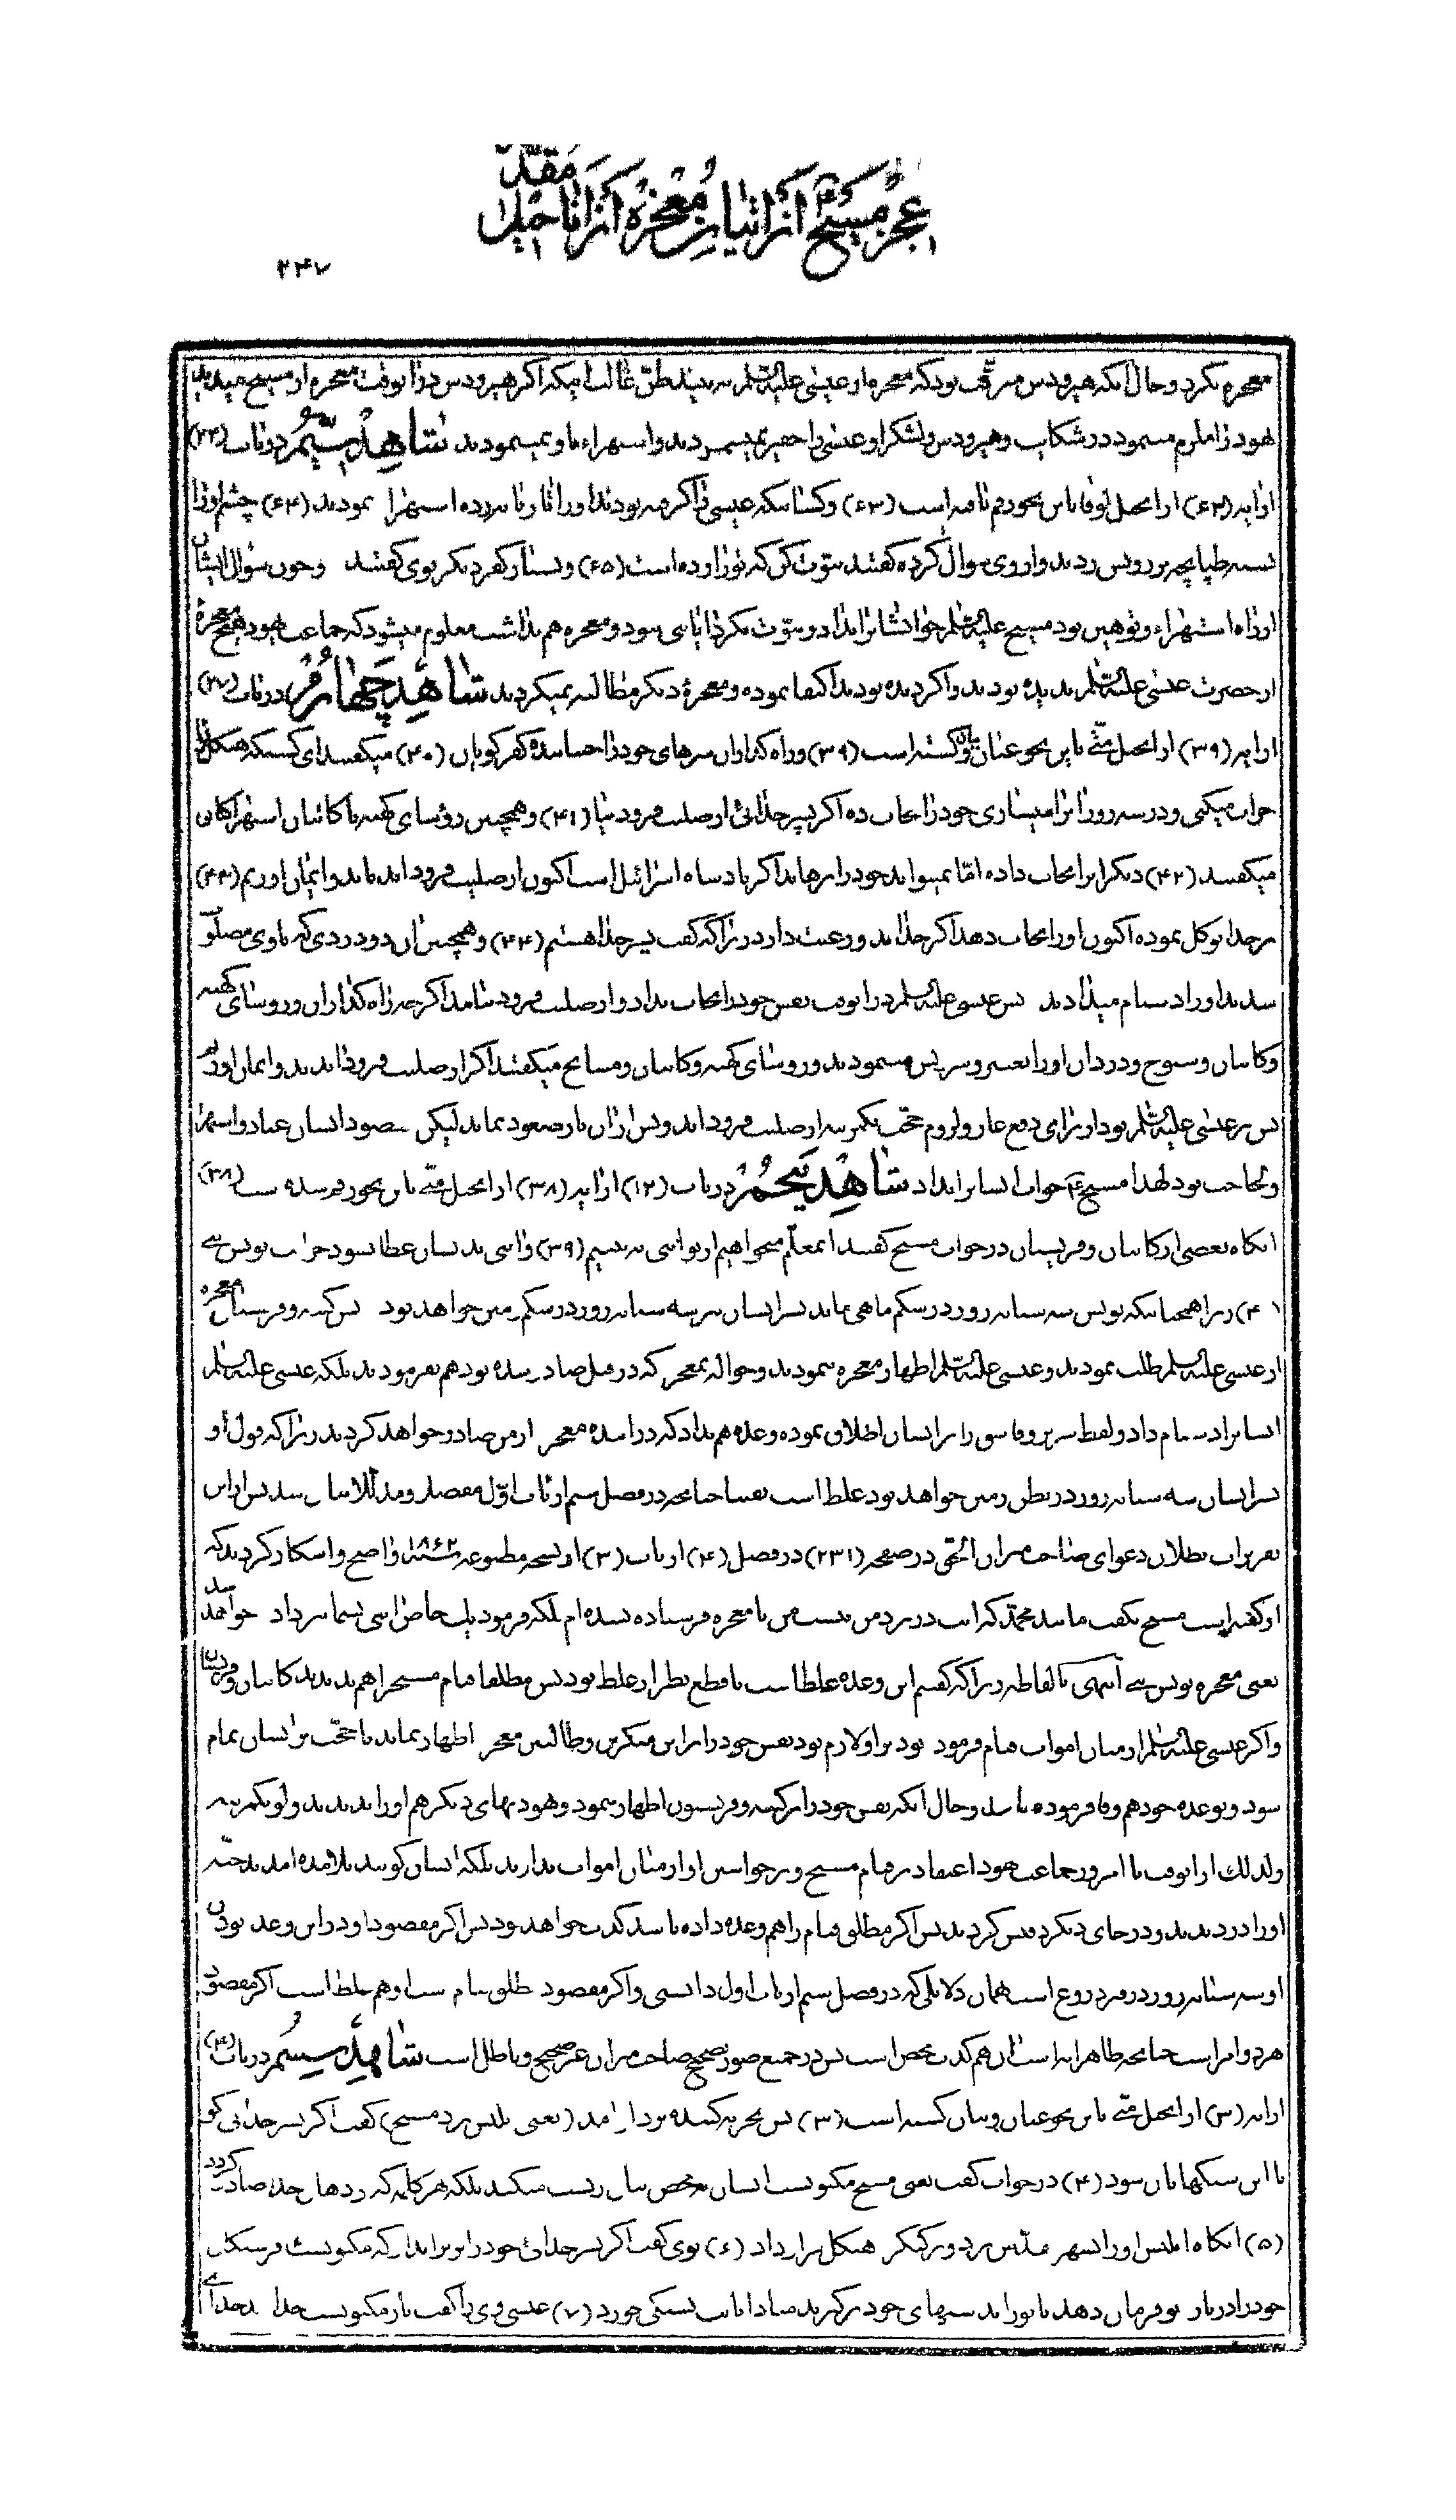 عجز مسیح از اتیان معجزه از اناجیل مقدّ
۲۴۷
معجزه نکرد و حال آنکه هیرودس مترقّب بود که معجزه از عیسی علیه السّلم به بیند ظنّ غالب اینکه اکر هیرودس در آنوقت معجزه از مسیح میدید
یهود را ملزم مینمود در شکایت و هیرودس و لشکر او عیسی را حقیر نمیشمردند و استهزاء باو نمینمودند شاهد سیّم در باب (۲۲)
از آیه (۶۳) از انجیل لوقا باین نحو رقم یافته است (۶۳) و کسانیکه عیسی را کرفته بودند او را تازیانه زده استهزا نمودند (۶۴) چشم او را
بسته طپانچه بر رویش زدند و از وی سوال کرده کفتند نبوّت کن که تو را زده است (۶۵) و بسیار کفر دیکر بوی کفتند و چون سؤال ایشان
از راه استهزاء و توهین بود مسیح علیه السّلم جواب ایشانرا نداد و نبوّت نکرد تا پاسی شود و معجزه هم نداشت معلوم میشود که جماعت یهود هیچ معجزهٔ
از حضرت عیسی علیه السّلم ندیده بودند و اکر دیده بودند اکتفا نموده و معجزهٔ دیکر مطالبه نمیکردند شاهد چهارم در باب (۲۷)
از آیه (۳۹) از انجیل متّی باین نحو عیان و بیان کشته است (۳۹) و راه کذاران سرهای خود را جنبانیده کفر کویان (۴۰) میکفتند ای کسیکه هیکل را
خراب میکنی و در سه روز آنرا میسازی خود را نجات ده اکر پسر خدائی از صلیب فرود بیا (۴۱) و همچنین رؤسای کهنه با کاتبان استهزا کنان
میکفتند (۴۲) دیکرانرا نجات داده امّا نمیتواند خود را برهاند اکر پادشاه اسرائیل است اکنون از صلیب فرود آید تا بدو ایمان آوریم (۴۳)
بر خدا توکل نموده اکنون او را نجات دهد اکر خدا بدو رغبت دارد زیرا که کفت پسر خدا هستم (۴۴) و همچنین آن دو دزدی که با وی مصلوب
شدند او را دشنام میدادند پس عیسی علیه السلم در آنوقت نفس خود را نجات نداد و از صلیب فرود نیامد اکرچه راه کذاران و روسای کهنه
و کاتبان و شیوخ و دزدان او را تعییر و سرزنش مینمودند و روسای کهنه و کاتبان و مشایخ میکفتند اکر از صلیب فرود آید بدو ایمان آوریم
پس بر عیسی علیه السّلم بود از برای دفع عار و لزوم حجّت یکمرتبه از صلیب فرود آید و پس از آن باز صعود نماید لیکن مقصود ایشان عناد و استهزا
و لجاجت بود لهذا مسیح ع جواب ایشانرا نداد شاهد پنجم در باب (۱۲) از آیه (۳۸) از انجیل متّی باین نحو رقم شده است (۳۸)
آنکاه بعضی از کاتبان و فریسیان در جواب مسیح کفتند ای معلّم میخواهیم از تو آیتی به بینیم (۳۹)
(۴۰) زیرا همچنانکه یونس سه شبانه روز در شکم ماهی ماند پسر انسان نیز سه شبانه روز در شکم زمین خواهد بود پس کتبه و فریسیان معجزه
از عیسی علیه السلم طلب نمودند و عیسی علیه السّلم اظهار معجزه ننمودند و حواله بمعجزه که در قبل صادر شده بود هم نفرمودند بلکه عیسی علیه السلم
ایشانرا دشنام داد و لفظ شریر و فاسق را بر ایشان اطلاق نموده وعده هم نداد که در آینده معجزه از من صادر خواهد کردید زیرا که قول او
پسر انسان سه شبانه روز در بطن زمین خواهد بود غلط است یقینا چنانچه در فصل سیّم از باب اوّل مفصلا و مدللا بیان شد پس از این
تقریرات بطلان دعوای صاحب میزان الحق در صفحه (۲۳۱) در فصل (۴) از باب (۳) از نسخه مطبوعه سنه ۱۸۶۲ واضح و آشکار کردید که
او کفته است مسیح نکفت مانند محمّد که آیت در نزد من نیست من با معجزه فرستاده نشده ام بلکه فرمود یک خاصّ آیتی بشما نیز داده خواهد شد
یعنی معجره یونس نبی انتهی بالفاظه زیرا که کفتیم این وعده غلط است با قطع نظر از غلط بودنش مطلقا قیام مسیح را هم ندیدند کاتبان و فریسیان
و اکر عیسی علیه السّلم از میان اموات قیام فرموده بود بر او لازم بود نفس خود را بر این منکرین و طالبین معجزه اظهار نماید تا حجّت بر ایشان تمام
شود و بوعده خود هم وفا فرموده باشد و حال آنکه نفس خود را بر کتبه و فریسیون اظهار ننمود و یهودیهای دیکر هم او را ندیدند ولو یکمرتبه
و لذلک از آنوقت تا امروز جماعت یهود اعتقاد بر قیام مسیح و برخواستن او از میان اموات ندارند بلکه ایشان کویند تلامذه آمدند جثّه
او را دزدیدند و در جای دیکر دفنش کردند پس اکر مطلق قیام را هم وعده داده باشد کذب خواهد بود پس اکر مقصود او در این وعده بودن
او سه شبانه روز در قبر دروغ است بهمان دلایلی که در فصل سیم از باب اول دانستی و اکر مقصود مطلق قیام است او هم غلط است اکر مقصود
هر دو امر است چنانچه ظاهر آیه است آن هم کذب محض است پس در جمیع صور تصحیح صاحب میزان غیر صحیح و باطل است شاهد ششم در باب (۴)
از آیه (۳) از انجیل متّی باین نحو عیان و بیان کشته است (۳) پس تجربه کننده نزد او آمد (یعنی ابلیس نزد مسیح) کفت اکر پسر خدائی بکو
تا این سنکها نان شود (۴) در جواب کفت یعنی مسیح مکتوبست انسان محض نان زیست نمیکند بلکه بهر کلمه که از دهان خدا صادر کردد
(۵) آنکاه ابلیس او را بشهر مقدّس برد و بر کنکره هیکل برپا داد (۶) بوی کفت اکر پسر خدائی خود را بزیر انداز که مکتوبست فرشتکان
خود را درباره تو فرمان دهد تا تو را بدستهای خود برکیرند مبادا پایت بسنکی خورد (۷) عیسی وی را کفت باز مکتوبست خداوند خدای